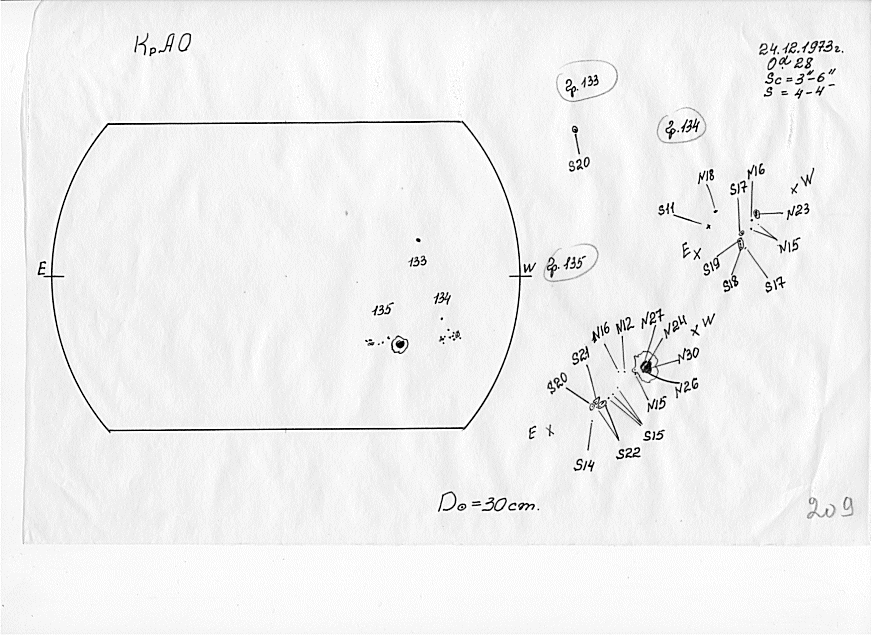 КрАО
24.12.1973г.
0ᵈ28
Sc = 3"-6"
S = 4-4
гр.133
S20
гр.134
N18
S17
N16
W
S11
N23
E
N15
S19
S18
S17
E
W
133
135
134
гр.135
N16
N12
N27
N24
W
S21
N30
S20
N26
N15
S15
E
S22
S14
D⊙=30cm.
209